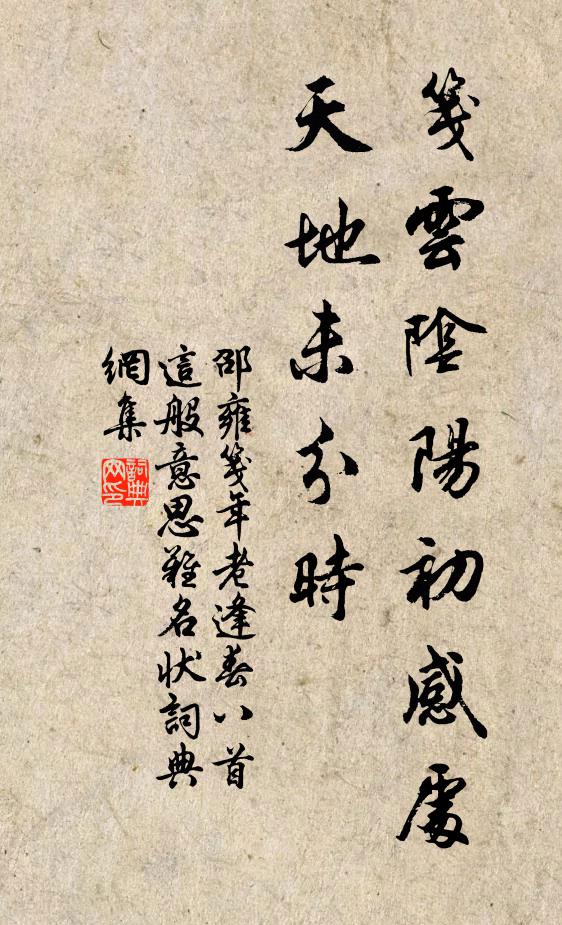 箋雲陰陽初感處
天地未分時
邵雍箋年老逢春八首
這般意思難名狀詞典
網集
詞典
网印